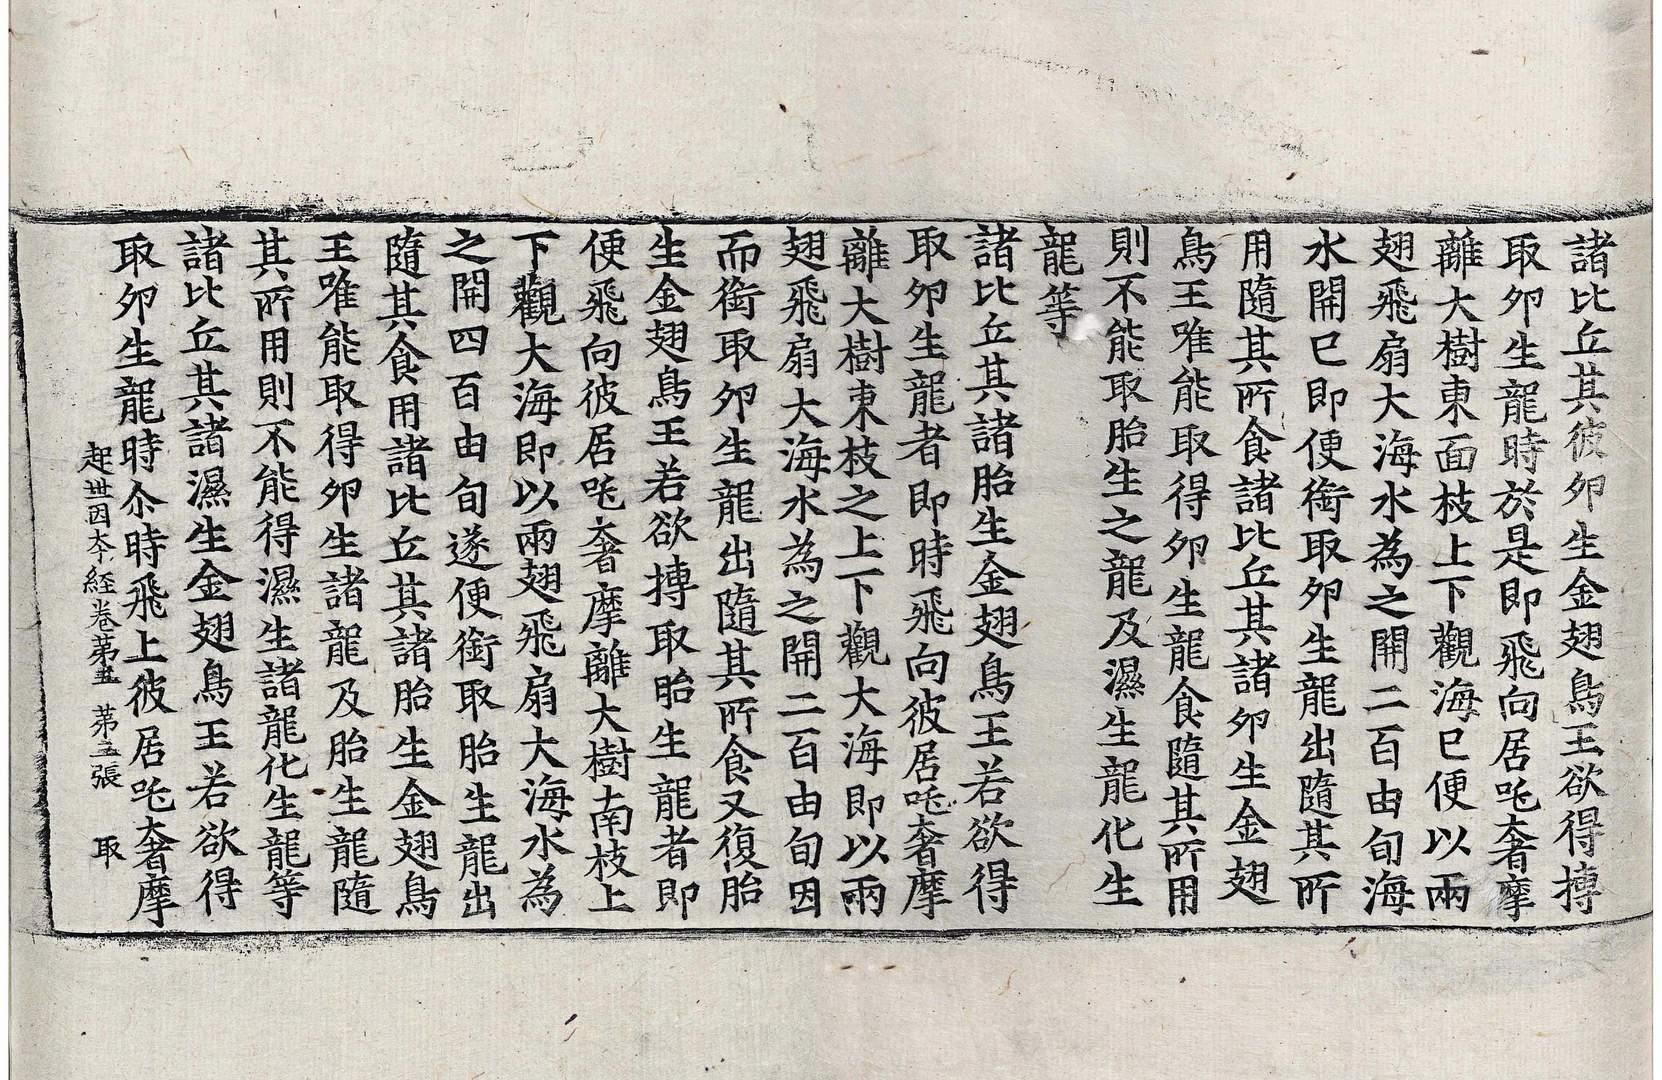 諸比丘其彼卵生金翅鳥王欲得搏
取卵生龍時於是即飛向居吒奢摩
離大樹東面枝上下觀海已便以兩
翅飛扇大海水為之開二百由旬海
水開已即便銜取卵生龍出隨其所
用隨其所食諸比丘其諸卵生金翅
鳥王唯能取得卵生龍食隨其所用
則不能取胎生之龍及濕生龍化生
龍等
諸比丘其諸胎生金翅鳥王若欲得
取卵生龍者即時飛向彼居吒奢摩
離大樹東枝之上下觀大海即以兩
翅飛扇大海水為之開二百由旬因
而銜取卵生龍出隨其所食又復胎
生金翅鳥王若欲搏取胎生龍者即
便飛向彼居吒奢摩離大樹南枝上
下觀大海即以兩翅飛扇大海水為
之開四百由旬遂便銜取胎生龍出
隨其食用諸比丘其諸胎生金翅鳥
王唯能取得卵生諸龍及胎生龍隨
其所用則不能得濕生諸龍化生龍等
諸比丘其諸濕生金翅鳥王若欲得
取卵生龍時尒時飛上彼居吒奢摩
起世因夲經卷苐五 苐五張 取